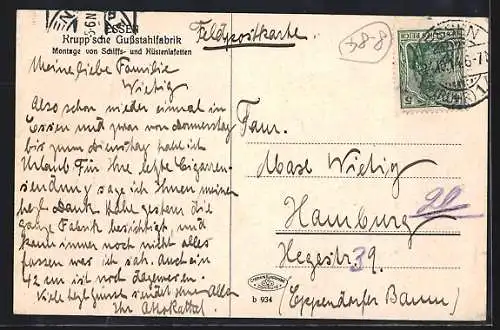 ESSEN
Krupp'sche Gußstahlfabrik
Montage von Schiffs- und Küstenlafetten
Feldpostkarte
8-8x
Meine liebe Familie
Wichtig
Also schon wieder einmal in
Essen und zwar von Donnerstag
bis zum Dienstag habe ich
Urlaub Für Ihre letzte Cigarren-
sendung sage ich Ihnen meinen
herzl. Dank. Habe gestern die
ganze Fabrik besichtigt, und
kann immer noch nicht alles
fassen was ich sah. Auch ein
42 cm ist noch
Viele herzl Grüsse sendet Ihnen Allen
Ihr
Fam.
Wichtig
Hamburg
20
Hegestr 39.
(Eppendorfer Baum)
b 934
5